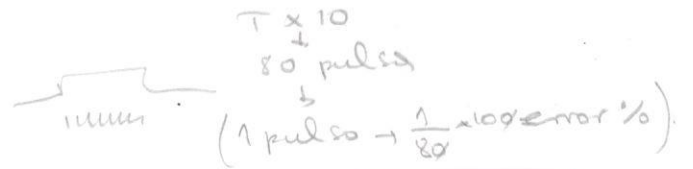 T x 10
↓
80 pulsos
↓
(1 pulso → 1/80 x 100 error %)